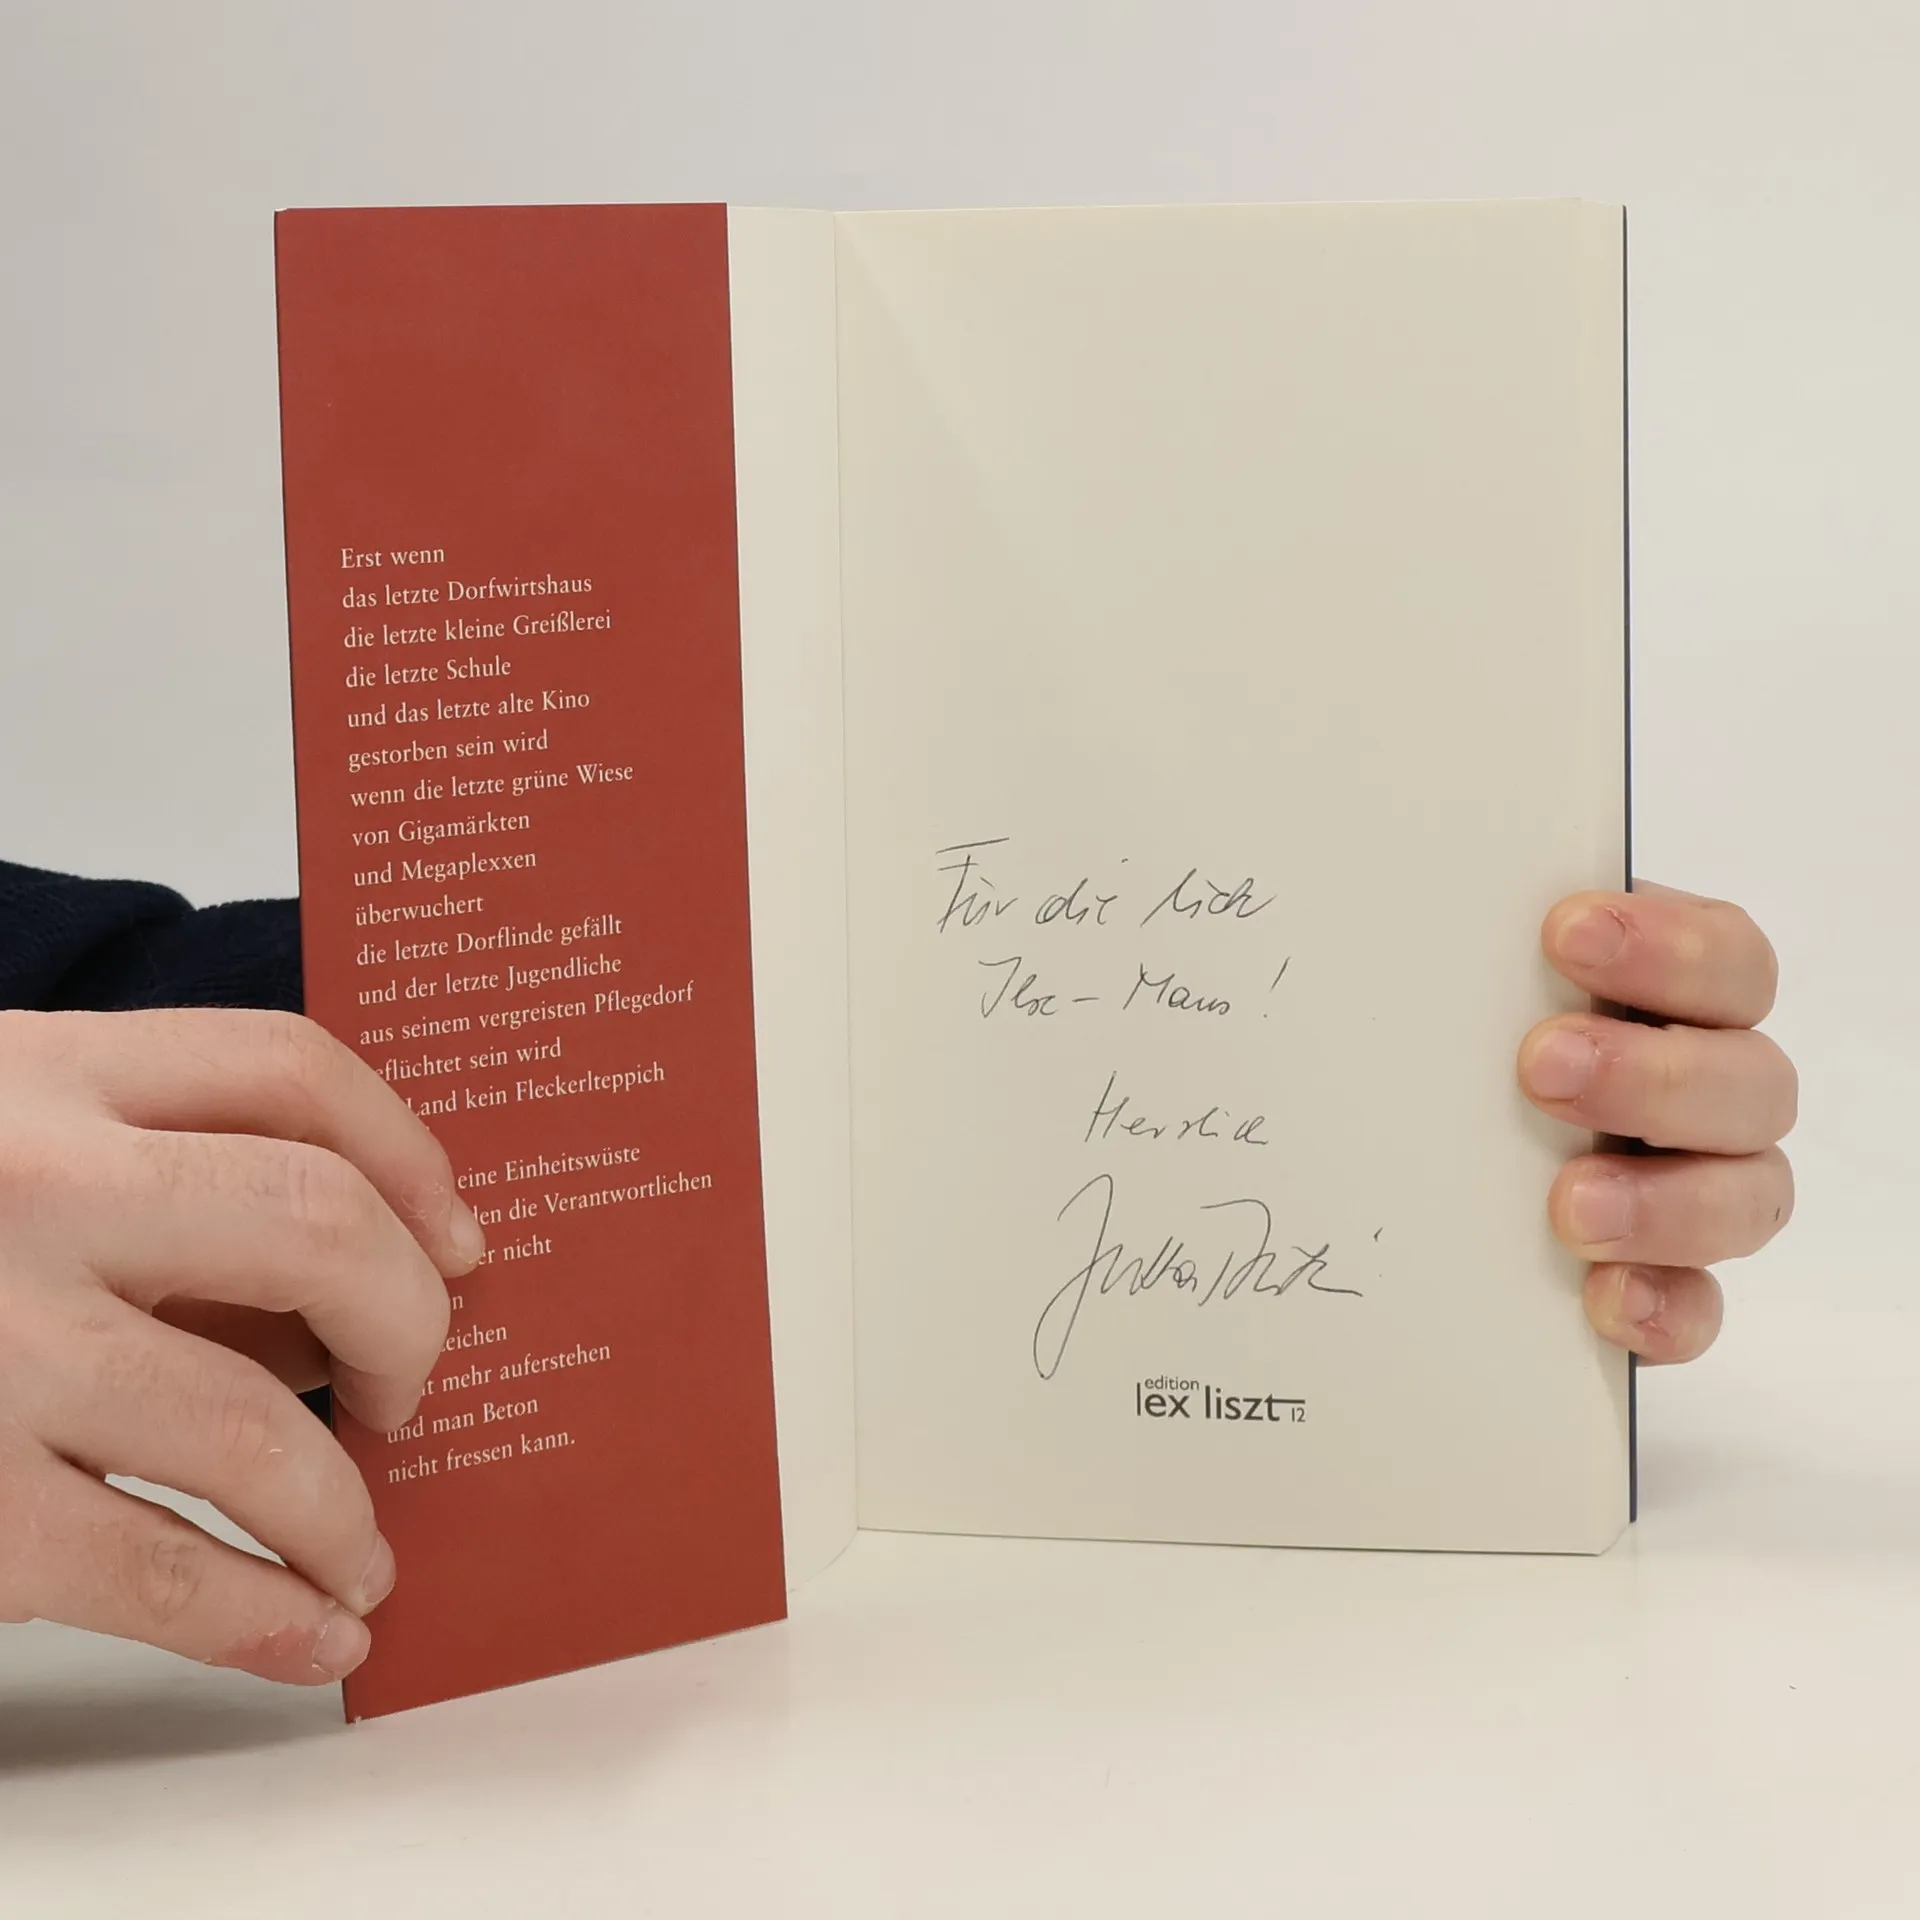 Erst wenn
das letzte Dorfwirtshaus
die letzte kleine Greißlerei
die letzte Schule
und das letzte alte Kino
gestorben sein wird
wenn die letzte grüne Wiese
von Gigamärkten
und Megaplexxen
überwuchert
die letzte Dorflinde gefällt
und der letzte Jugendliche
aus seinem vergreisten Pflegedorf
eflüchtet sein wird
Land kein Fleckerlteppich
eine Einheitswüste
den die Verantwortlichen
er nicht
n
eichen
t mehr auferstehen
und man Beton
nicht fressen kann.
Für die
Ilse - Maus!
Herzlich
Jutta
edition
lex liszt 12